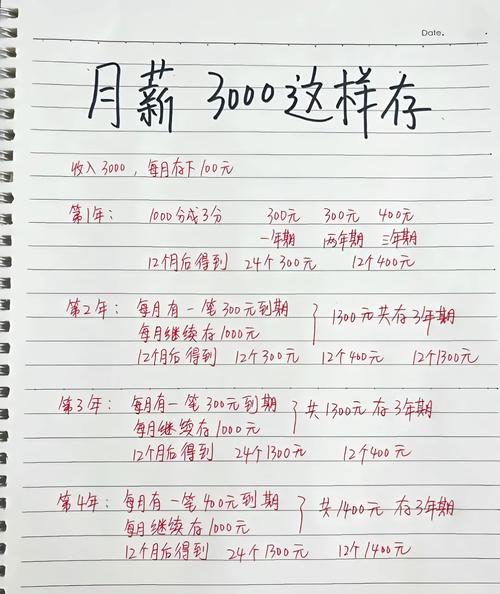 Date.
月薪 3000这样存
收入3000，每月存下100元
第1年： 1000分成3分 300元 300元 400元
一年期 两年期 三年期
12个月后得到 24个300元 12个400元
第2年： 每月有一笔300元到期
每月继续存1000元
1300元共存3年期
12个月后得到 12个300元 12个400元 12个1300元
第3年： 每月有一笔300元到期
每月继续存1000元
共1300元存3年期
12个月后得到 24个1300元 12个400元
第4年： 每月有一笔400元到期
每月继续存1000元
共1400元 存3年期
12个月后得到 24个1300元 12个1400元